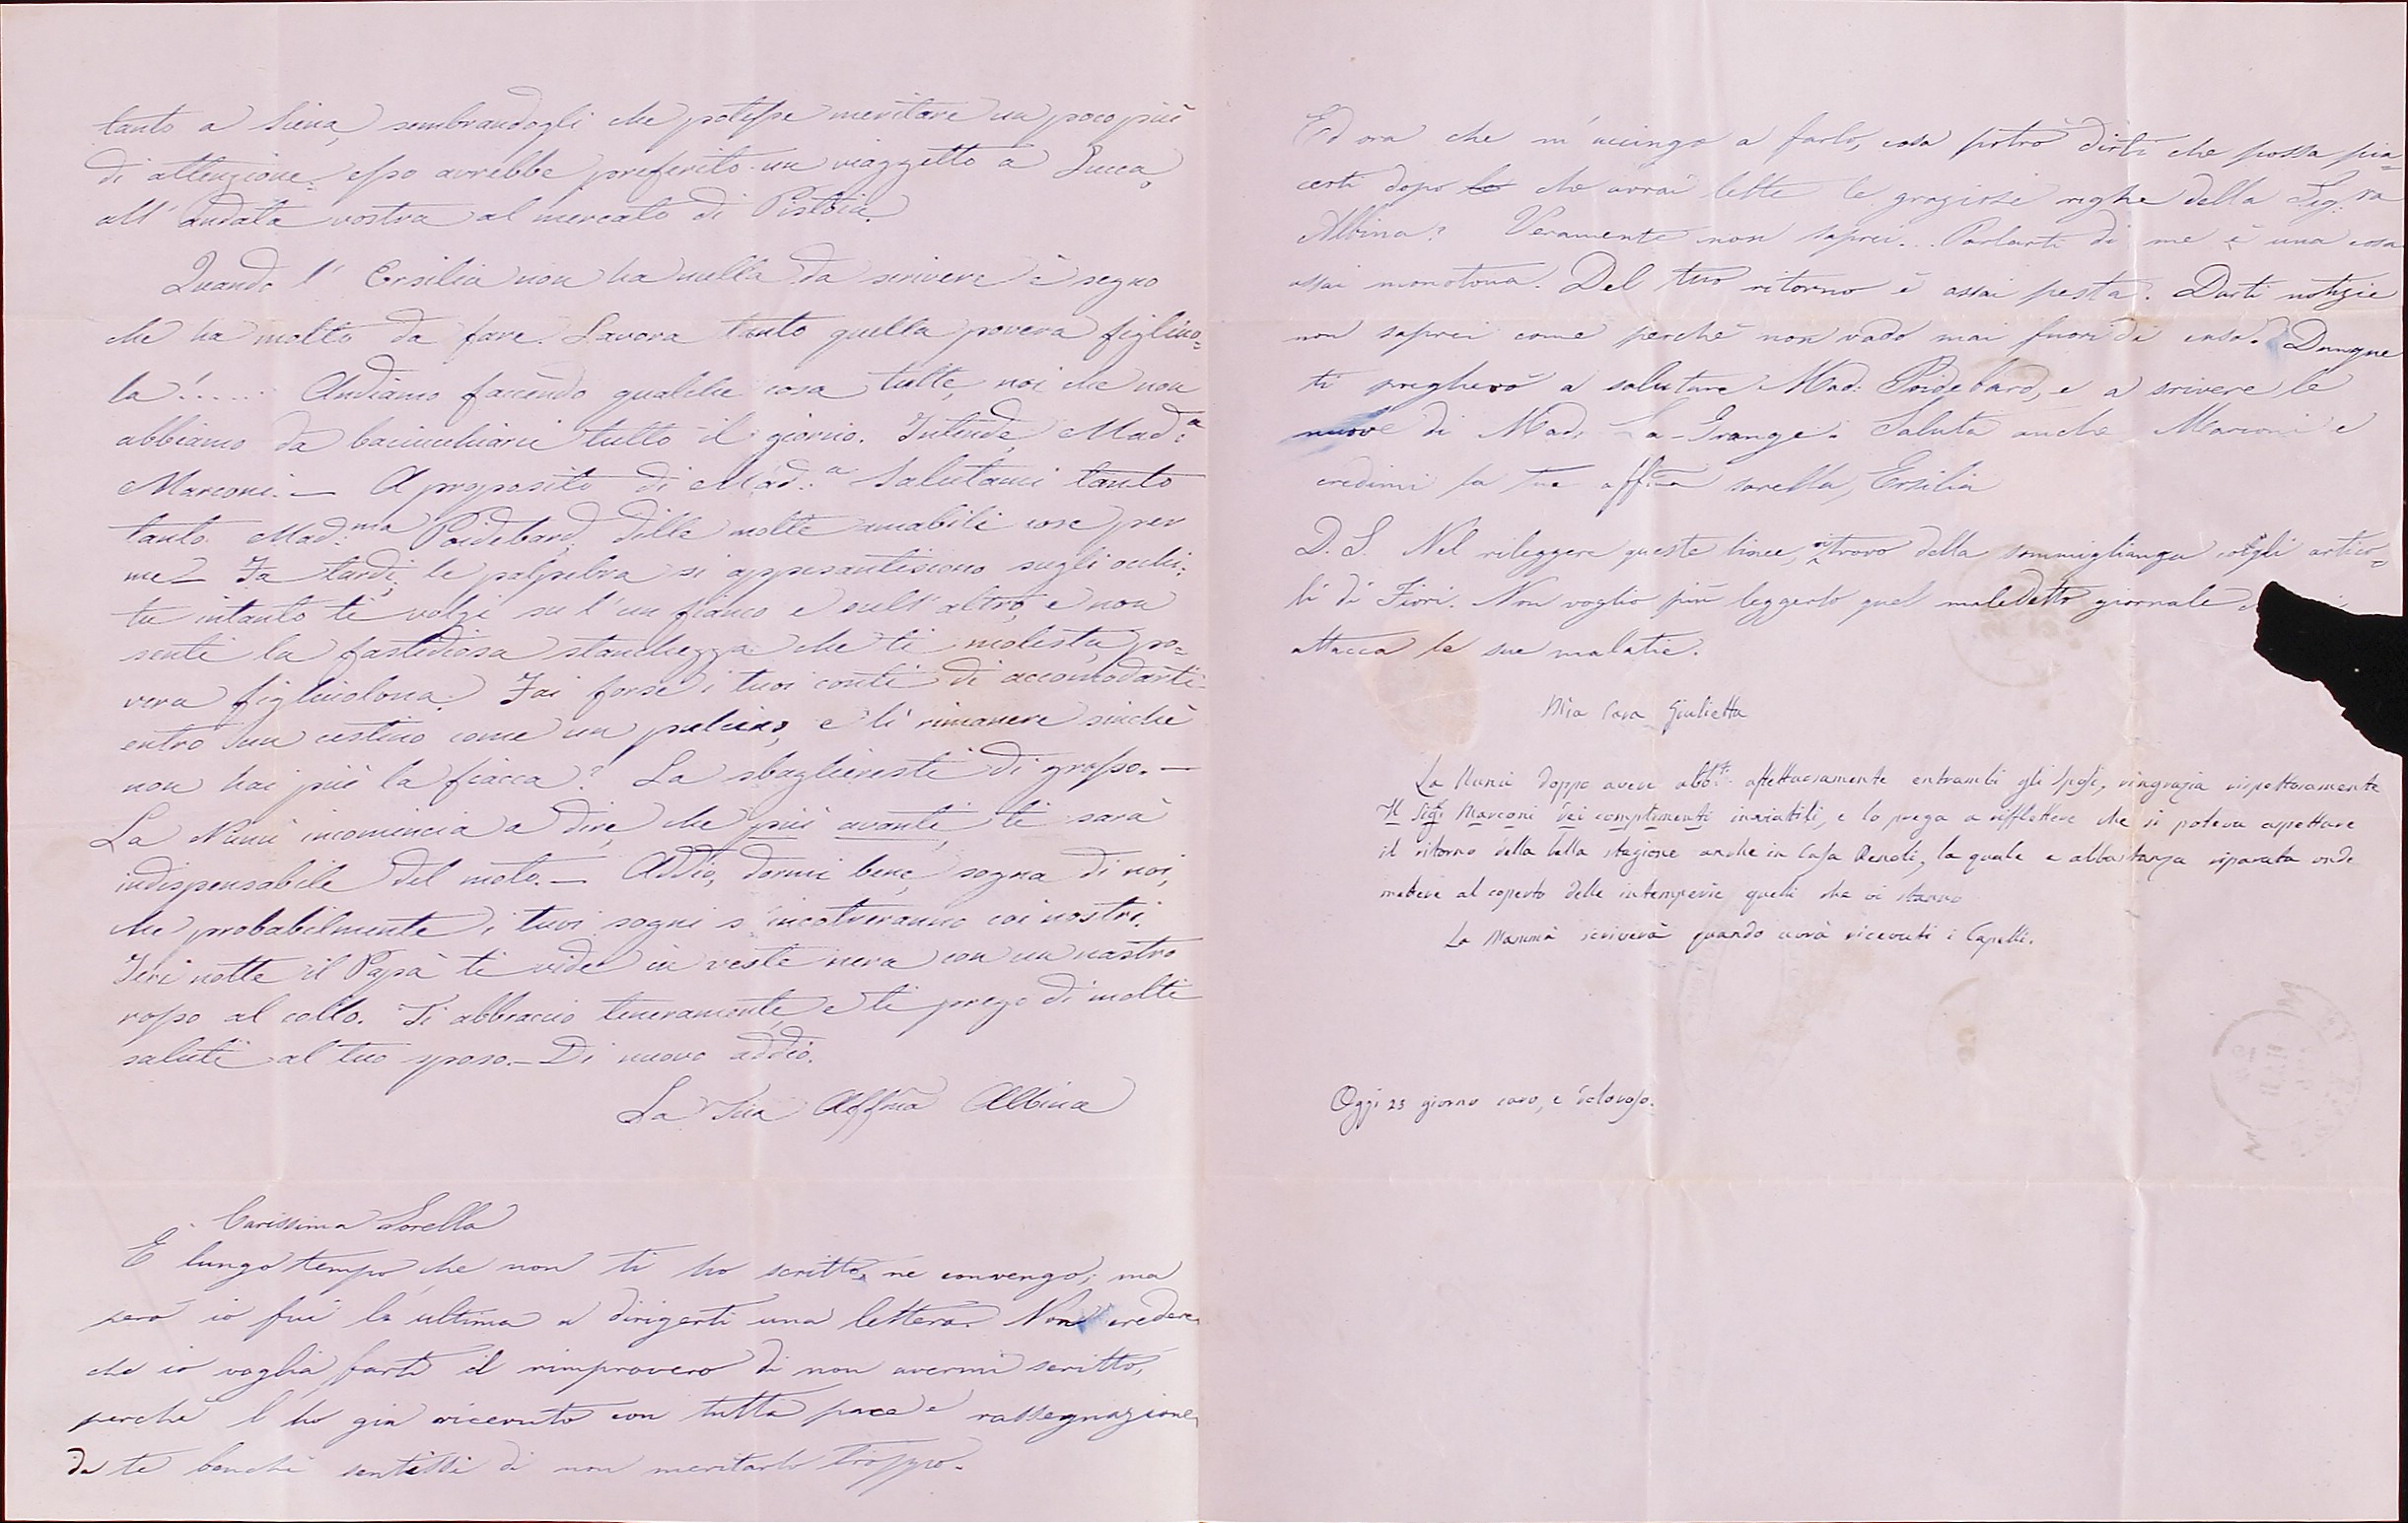 tanto a Siena, sembrandogli che potesse meritare un poco più
di attenzione; esso avrebbe preferito un viaggetto a Lucca,
all'andata vostra al mercato di Pistoia.
Quando l'Ersilia non ha nulla da scrivere è segno
che ha molto da fare. Lavora tanto quella povera figliuo=
la!..... Andiamo facendo qualche cosa tutte, noi che non
abbiamo da baciucchiarci tutto il giorno. Intende, Mad.a
Marconi. — A proposito di Mad.a Salutami tanto
tanto Mad.ma Poidebard, dille molte amabili cose per
me. Fa tardi, le palpebra si appesantiscono sugli occhi:
tu intanto ti volgi su l'un fianco e sull'altro, e non
senti la fastidiosa stanchezza che ti molesta, po=
vera figliuolona. Fai forse i tuoi conti di accomodarti
entro un cestino come un pulcino, e lì rimanere sinché
non hai più la fiacca? La sbaglieresti di grosso. —
La Nunù incomincia a dire, che più avanti, ti sarà
indispensabile del moto. — Addio, dormi bene, sogna di noi,
che probabilmente i tuoi sogni s'incontreranno coi nostri.
Ieri notte il Papà ti vide in veste nera con un nastro
rosso al collo. Ti abbraccio teneramente, e ti prego di molti
saluti al tuo sposo. — Di nuovo addio.
La tua Affma Albina
Carissima Sorella
È lungo tempo, che non ti ho scritto, ne convengo; ma
però io fui la ultima a dirigerti una lettera. Non credere
che io voglia farti il rimprovero di non avermi scritto,
perché l'ho già ricevuto con tutta pace e rassegnazione
da te benché sentissi di non meritarlo troppo.
Ed ora che m'accingo a farlo, cosa potrò dirti che possa pia=
certi dopo che avrai lette le graziose righe della Sig.ra
Albina? Veramente non saprei... Parlarti di me è una cosa
assai monotona. Del tuo ritorno è assai pesta. Darti notizie
non saprei come perché non vado mai fuori di casa. Dunque
ti pregherò a salutare Mad. Poidebard, e a scrivere le
nuove di Mad. La-Grange. Saluta anche Marconi e
credimi la tua aff.ma sorella, Ersilia
D. S. Nel rileggere queste linee, trovo della sommiglianza cogli artico=
li di Fiori. Non voglio più leggerlo quel maledetto giornale
attacca le sue malatie.
Mia Cara Giulietta
La Nunù doppo avere abb.to affettuosamente entrambi gli Sposi, ringrazia rispettosamente
Il Sig. Marconi dei complimenti inviatili, e lo prega a rifflettere che si poteva aspettare
il ritorno della bella stagione anche in Casa Renoli, la quale e abbastanza riparata onde
mettere al coperto delle intemperie quelli che vi stanno
La Mammà scriverà quando avrà ricevuti i Capelli.
Oggi 23 giorno caro, e doloroso.